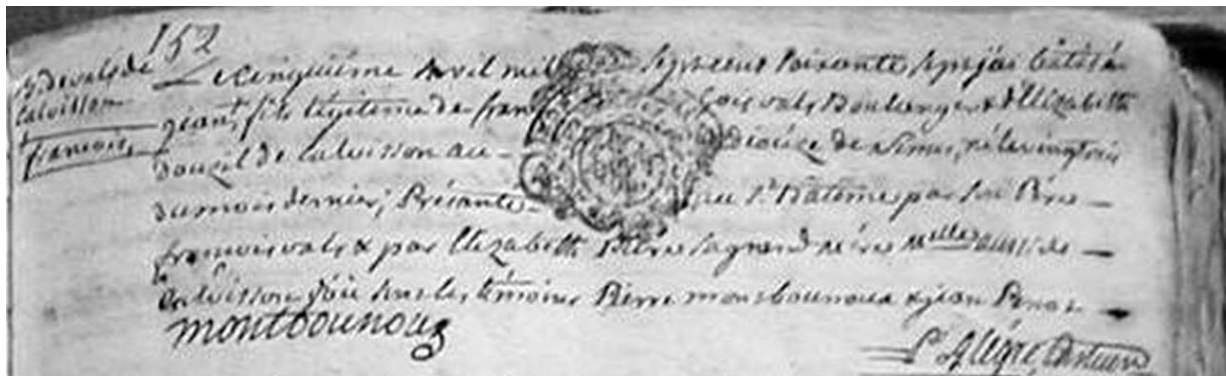 152
B. de vals de
Calvisson
françois
Le cinquième avril mil sept cent soixante sept j'ai batisé
jean, fils légitime de fran çois vals Boulanger & d'Elizabeth
Douzel de Calvisson au diocèze de nimes, né le vingt
du mois dernier; Présanté au St Batême par son Père
francois vals & par Elizabeth Pierre sa grand mère de
Calvisson les témoins Pierre montbounoux & jean
montbounoux
P. Alègre,